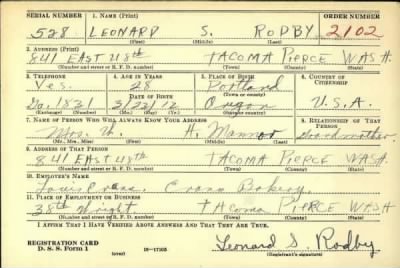 SERIAL NUMBER 1. NAME (Print) ORDER NUMBER
528 LEONARD S. RODBY 2102
(First) (Middle) (Last)
2. ADDRESS (Print)
841 EAST 48th TACOMA PIERCE WASH.
(Number and street or R. F. D. number) (Town) (County) (State)
3. TELEPHONE 4. AGE IN YEARS 5. PLACE OF BIRTH 6. COUNTRY OF CITIZENSHIP
Yes. 28 Portland
DATE OF BIRTH (Town or county)
Ga. 1831 3/22/12 Oregon U.S.A.
(Exchange) (Number) (Mo.) (Day) (Yr.) (State or country)
7. NAME OF PERSON WHO WILL ALWAYS KNOW YOUR ADDRESS 8. RELATIONSHIP OF THAT PERSON
Mrs. H. Grandmother
(Mr., Mrs., Miss) (First) (Middle) (Last)
9. ADDRESS OF THAT PERSON
841 EAST 48th TACOMA PIERCE WASH.
(Number and street or R. F. D. number) (Town) (County) (State)
10. EMPLOYER'S NAME
Bakery
11. PLACE OF EMPLOYMENT OR BUSINESS
38th Wright. TACOMA PIERCE WASH
(Number and street or R. F. D. number) (Town) (County) (State)
I AFFIRM THAT I HAVE VERIFIED ABOVE ANSWERS AND THAT THEY ARE TRUE.
REGISTRATION CARD
D. S. S. Form 1 (over) 16-17105 Leonard S. Rodby
(Registrant's signature)